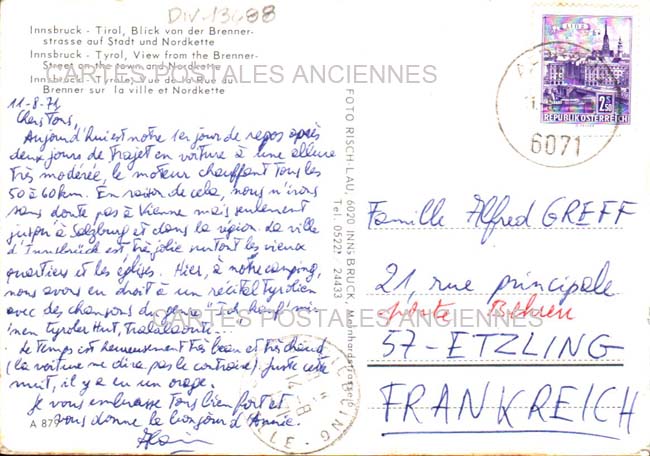 DIV-13688
Innsbruck - Tirol, Blick von der Brenner-
strasse auf Stadt und Nordkette
Innsbruck - Tyrol, View from the Brenner-
Street on the town and Nordkette
Innsbruck - Tyrole, Vue de la Rue du
Brenner sur la ville et Nordkette
CARTES POSTALES ANCIENNES
11-8-71
Chers Tous,
Aujourd'hui est notre 1er jour de repos après
deux jours de trajet en voiture à une allure
très modérée, le moteur chauffant tous les
50 à 60 km. En raison de cela, nous n'irons
sans doute pas à Vienne mais seulement
jusqu'à Salzburg et dans la région. La ville
d'Innsbruck est très jolie surtout les vieux
quartiers et les églises. Hier, à notre camping,
nous avons eu droit à un récital tyrolien
avec des chansons du genre "Ich kauf' mir
'nen tyroler Hut, Tralalaouti".
Le temps est heureusement très beau et très chaud
(la voiture ne dira pas le contraire). Juste cette
nuit, il y a eu un orage.
Je vous embrasse tous bien fort et
vous donne le bonjour d'Annie.
Alain
A 879
FOTO RISCH-LAU, 6020 INNSBRUCK,
Tel. 05222 24433
REPUBLIK ÖSTERREICH
2.50
6071
Famille Alfred GREFF
21, rue principale
CARTES POSTALES ANCIENNES
57-ETZLING
FRANKREICH